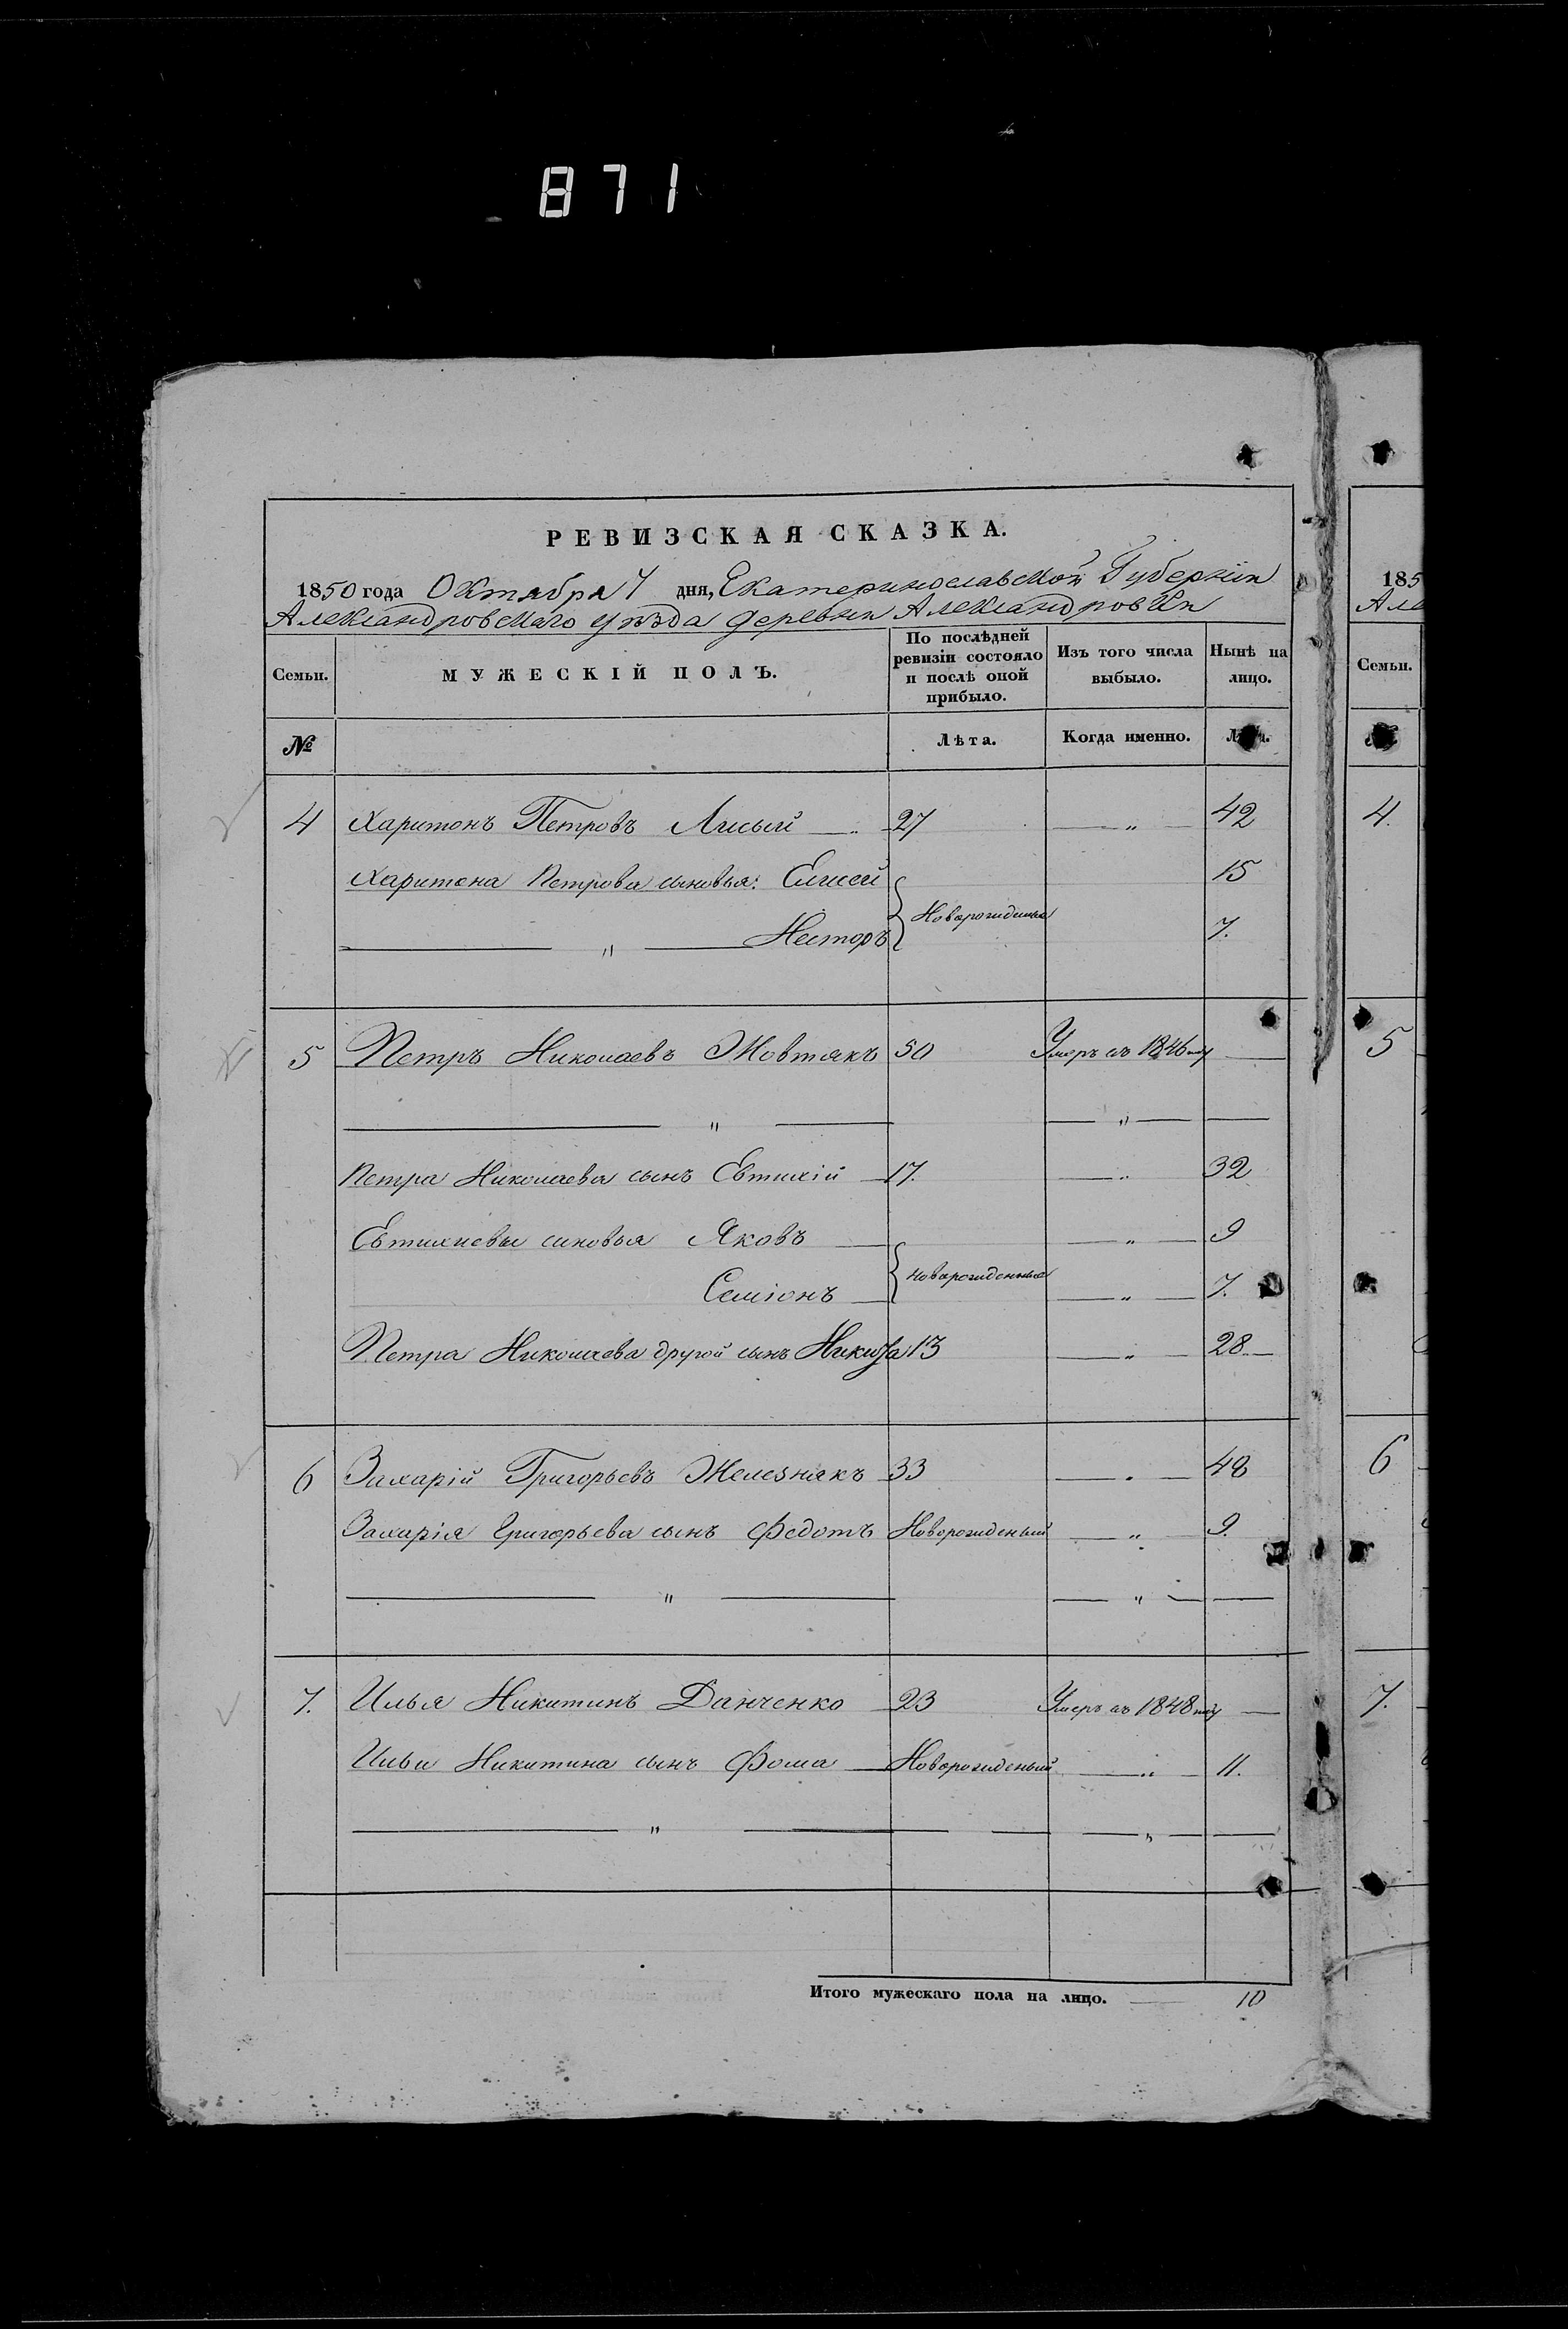 871
РЕВИЗСКАЯ СКАЗКА.
1850 года Октября 7 дня, Екатеринославской Губерніи
Александровскаго уѣзда деревни Александровки
185
Але
Семьи. МУЖЕСКІЙ ПОЛЪ. По послѣдней ревизіи состояло и послѣ оной прибыло. Изъ того числа выбыло. Нынѣ на лицо. Семьи.
№ Лѣта. Когда именно. Лѣта.
4 Харитонъ Петровъ Лисый — „ 27 — „ — 42 4.
Харитона Петрова сыновья: Елисей 15
— „ — Несторъ } Новорожденые 7.
5 Петръ Николаевъ Жовтякъ 50 Умеръ въ 1846 году — 5
— „ — — „ — —
Петра Николаева сынъ Евтихій — 17. — „ 32
Евтихиевы сыновья Яковъ — — „ — 9
Семіонъ — } новорожденные — „ — 7.
Петра Николаева другой сынъ Никита 13 — „ — 28 —
6 Захарій Григорьевъ Железнякъ 33 — „ — 48 6
Захарія Григорьева сынъ Федотъ Новорожденый — „ — 9.
— „ — — „ — —
7. Илья Никитинъ Данченко 23 Умеръ въ 1848 году — 7.
Ильи Никитина сынъ Фома — Новорожденый — „ — 11.
— „ — — — — „ — —
Итого мужескаго пола на лицо. — 10